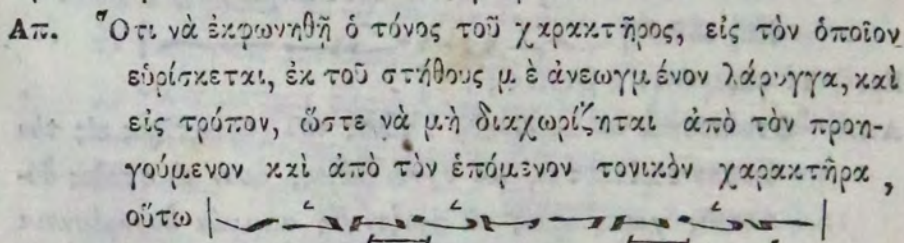 Απ. Ὅτι νὰ ἐκφωνηθῇ ὁ τόνος τοῦ χαρακτῆρος, εἰς τὸν ὁποῖον
εὑρίσκεται, ἐκ τοῦ στήθους μὲ ἀνεωγμένον λάρυγγα, καὶ
εἰς τρόπον, ὥστε νὰ μὴ διαχωρίζηται ἀπὸ τὸν προη-
γούμενον καὶ ἀπὸ τὸν ἑπόμενον τονικὸν χαρακτῆρα,
οὕτω